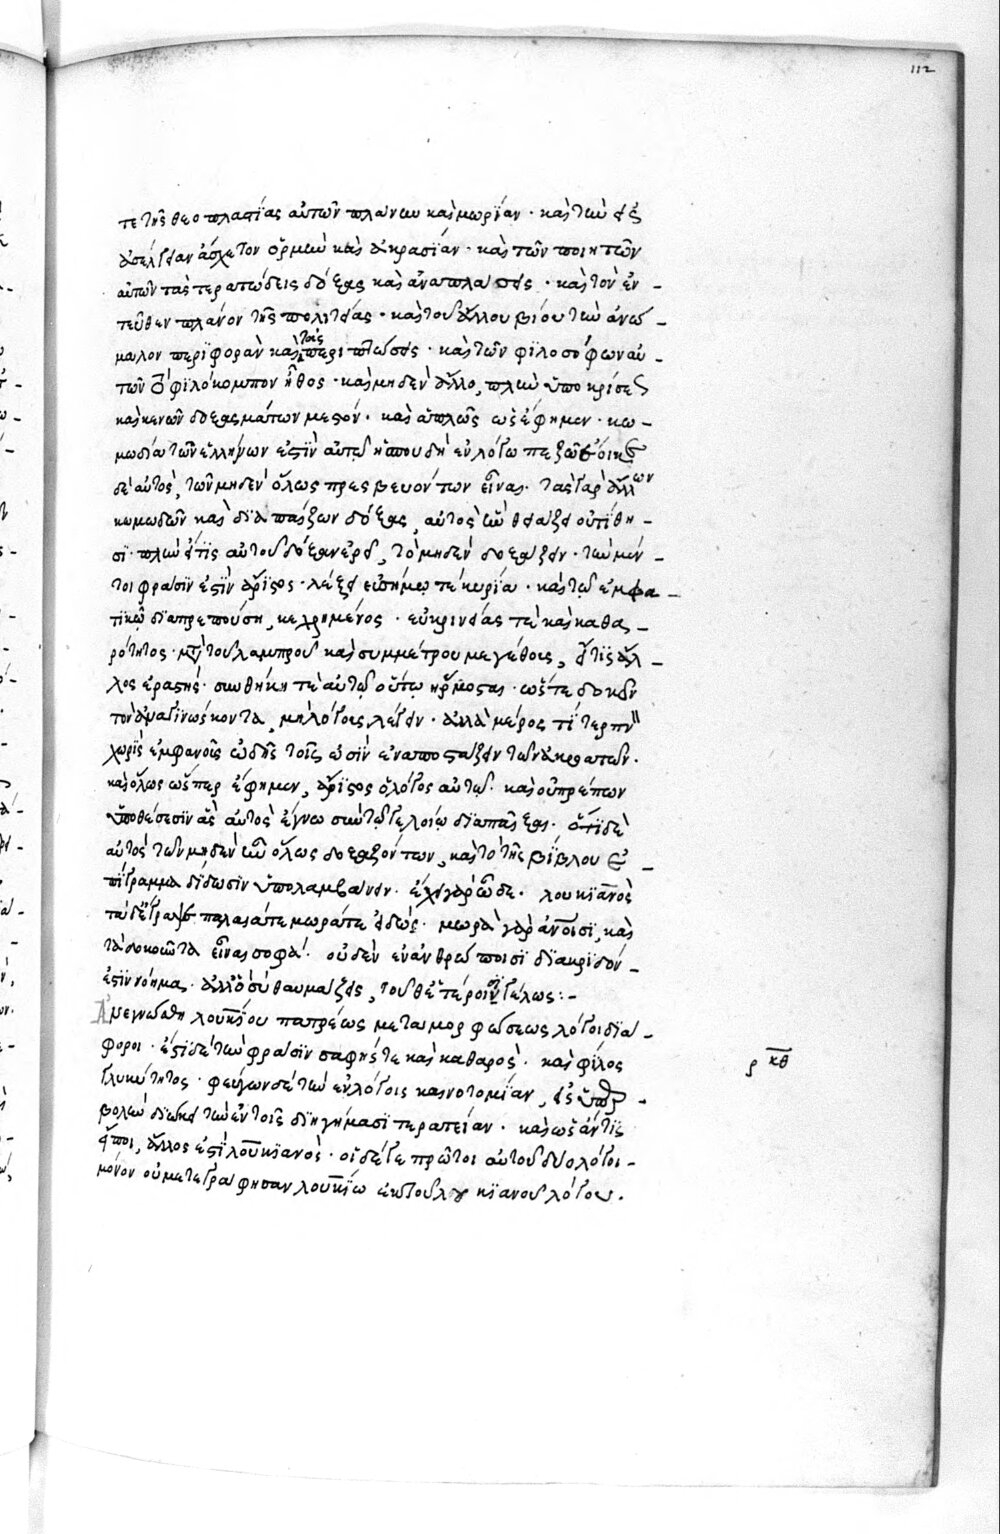 112
τε τῆς θεοπλαστίας αὐτῶν πλάνην καὶ μωρίαν · καὶ τὴν εἰς
ἀσέλγειαν ἄσχετον ὁρμὴν καὶ ἀκρασίαν · καὶ τῶν ποιητῶν
αὐτῶν τὰς τερατώδεις δόξας καὶ ἀναπλάσεις · καὶ τὸν ἐν-
τεῦθεν πλάνον τῆς πολιτείας · καὶ τοῦ ἄλλου βίου τὴν ἀνώ-
μαλον περιφορὰν καὶ τὰς περιπτώσεις · καὶ τῶν φιλοσόφων αὐ-
τῶν τὸ φιλόκομπον ἦθος · καὶ μηδὲν ἄλλο, πλὴν ὑποκρίσεως
καὶ κενῶν δοξασμάτων μεστόν · καὶ ἁπλῶς ὡς ἔφημεν · κω-
μωδία τῶν ἑλλήνων ἐστὶν αὐτῷ ἡ σπουδὴ ἐν λόγω πεζῶ · ἔοικε
δὲ αὐτὸς, τῶν μηδὲν ὅλως πρεσβευόντων εἶναι · τὰς γὰρ ἄλλων
κωμωδῶν καὶ διαπαίζων δόξας, αὐτὸς ἣν θειάζει οὐ τίθη-
σι · πλὴν εἴ τις αὐτοῦ δόξαν ἐρεῖ, τὸ μηδὲν δοξάζειν · τὴν μέν-
τοι φράσιν ἐστὶν ἄριστος · λέξει εὐσήμω τε κυρία · καὶ τῷ ἐμφα-
τικῷ διαπρεπούση, κεχρημένος · εὐκρινείας τε καὶ καθα-
ρότητος · μετὰ τοῦ λαμπροῦ καὶ συμμέτρου μεγέθους, εἴ τις ἄλ-
λος ἐραστής · συνθήκη τε αὐτῷ οὕτω ἥρμοσται · ὥστε δοκεῖν
τὸν ἀναγινώσκοντα, μὴ λόγους λέγειν · ἀλλὰ μέλος τι τερπνὸν
χωρὶς ἐμφανοῦς ὠδῆς τοῖς ὠσὶν ἐναποστάζειν τῶν ἀκροατῶν ·
καὶ ὅλως ὥσπερ ἔφημεν, ἄριστος ὁ λόγος αὐτῷ · καὶ οὐ πρέπων
ὑποθέσεσιν ἃς αὐτὸς ἔγνω σὺν τῷ γελοίω διαπαῖξαι · ὅτι δὲ
αὐτὸς τῶν μηδὲν ἦν ὅλως δοξαζόντων, καὶ τὸ τῆς βίβλου ἐ-
πίγραμμα δίδωσιν ὑπολαμβάνειν · ἔχει γὰρ ὧδε · λουκιανὸς
τάδ' ἔγραψε παλαιά τε μωρά τε εἰδώς · μωρὰ γὰρ ἀνθρώποισι, καὶ
τὰ δοκοῦντα εἶναι σοφά · οὐδὲν ἐν ἀνθρώποισι διακριδόν-
ἐστι νόημα · ἀλλ' ὃ σὺ θαυμάζεις, τοῦθ' ἑτέροισι γέλως : -
Ἀνεγνώσθη λουκίου πατρέως μεταμορφώσεως λόγοι διά-
φοροι · ἔστι δὲ τὴν φράσιν σαφής τε καὶ καθαρὸς · καὶ φίλος
γλυκύτητος · φεύγων δὲ τὴν ἐν λόγοις καινοτομίαν, εἰς ὑπερ-
βολὴν διώκει τὴν ἐν τοῖς διηγήμασι τερατείαν · καὶ ὡς ἄν τις
εἴποι, ἄλλος ἐστὶ λουκιανὸς · οἱ δέ γε πρῶτοι αὐτοῦ δύο λόγοι-
μόνον οὐ μετεγράφησαν λουκίω ἐκ τοῦ λουκιανοῦ λόγου ·
ρκθ